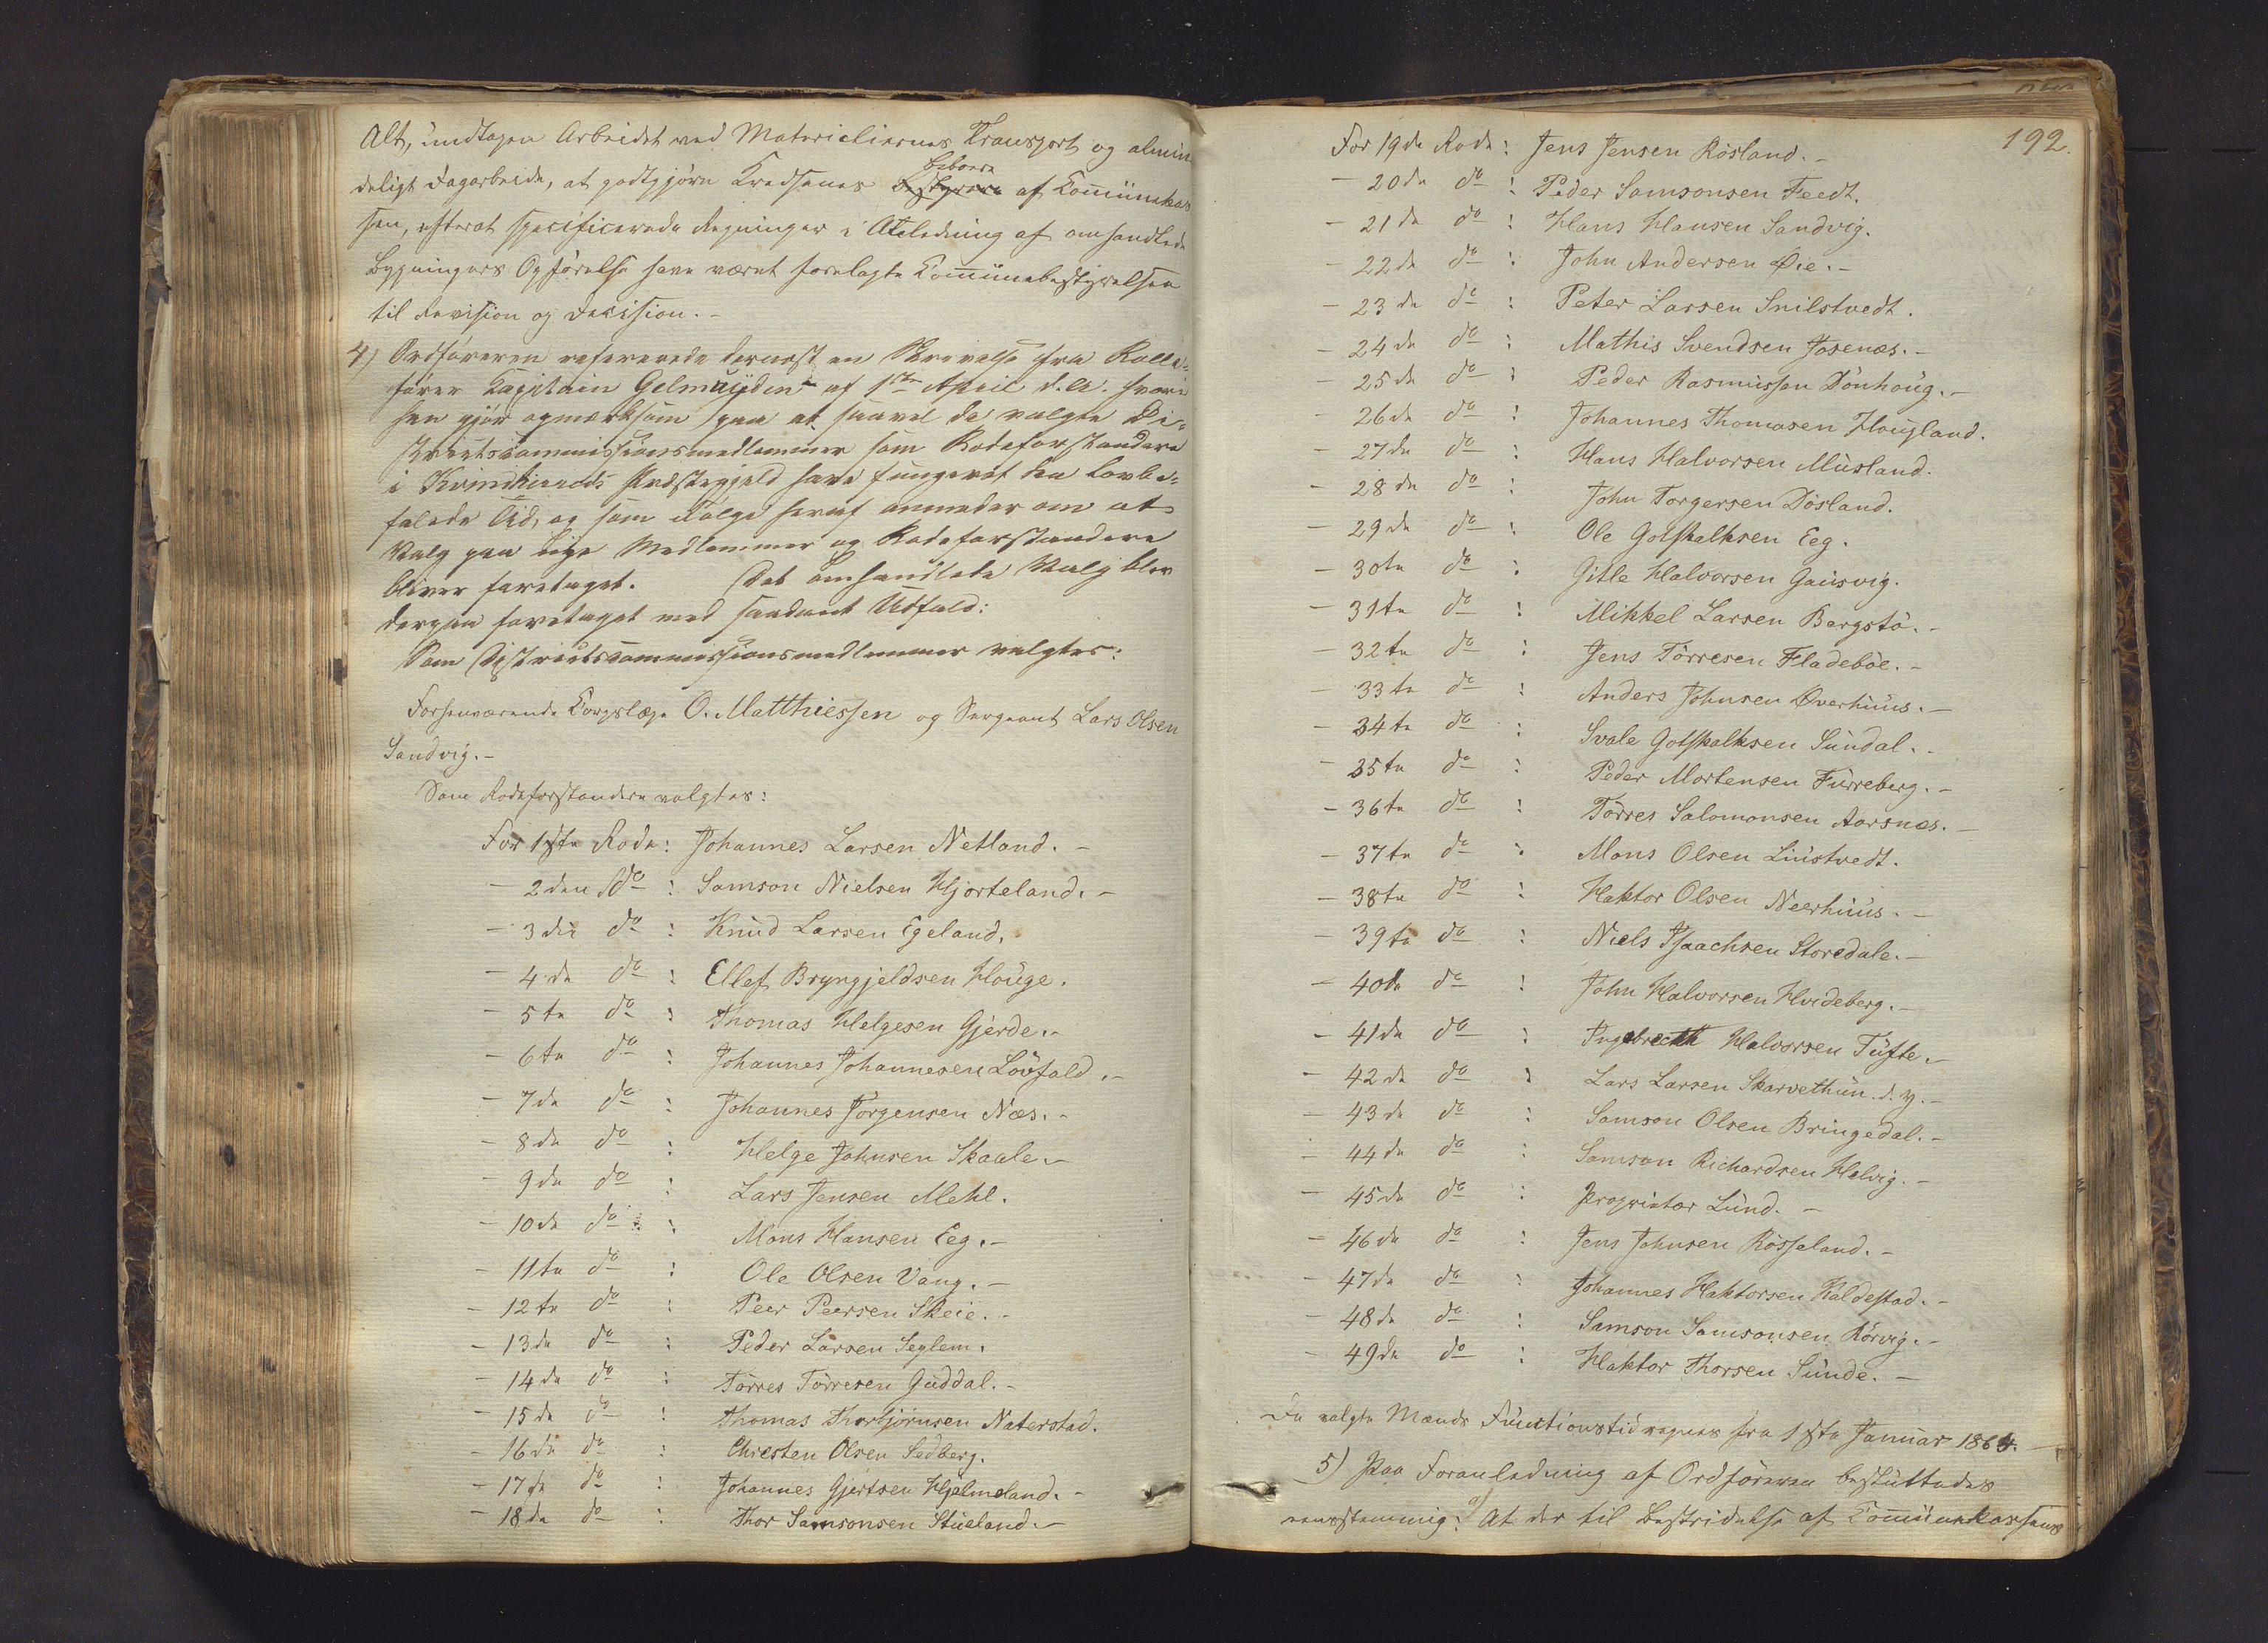 Alt, undtagen Arbeidet ved Materialiernes Transport og almin
deligt Dagarbeide, at godtgjøre Kredsenes Bestyrere af Communekas
Beboere
sen, efterat specificerede Regninger i Anledning af omhandlede
Bygningers Opførelse have været forelagte Communebestyrelsen
til Revision og Decision. -
4) Ordføreren refererede dernæst en Skrivelse fra Rulle-
fører Kapitain Gelmuyden af 1ste April d.A. hvori
han gjør opmærksom paa at saavel de valgte Di-
strictscommissionsmedlemmer som Rodeforstandere
i Kvindherreds Præstegjeld have fungeret den lovbe-
falede Tid, og som Følge heraf anmoder om at
Valg paa nye Medlemmer og Rodeforstandere
bliver foretaget. Det omhandlede Valg blev
derpaa foretaget med saadant Udfald:
Som Districtscommissionsmedlemmer valgtes:
Forhenværende Corpslæge O. Matthiessen og Sergeant Lars Olsen
Sandvig. -
Som Rodeforstandere valgtes:
For 1ste Rode: Johannes Larsen Netland. -
- 2den do : Samson Nielsen Hjorteland. -
- 3die do : Knud Larsen Egeland.
- 4de do : Ellef Bryngjeldsen Houge.
- 5te do : Thomas Helgesen Gjerde. -
- 6te do : Johannes Johannesen Løvfald. -
- 7de do : Johannes Jørgensen Næs. -
- 8de do : Helge Johnsen Skaale. -
- 9de do : Lars Jensen Mehl.
- 10de do : Mons Hansen Eeg. -
- 11te do : Ole Olsen Vang. -
- 12te do : Peer Peersen Skeie. -
- 13de do : Peder Larsen Seglem.
- 14de do : Tørres Tørresen Guddal. -
- 15de do : Thomas Thorbjørnsen Naterstad.
- 16de do : Christen Olsen Sedberg.
- 17de do : Johannes Gjertsen Hjelmeland. -
- 18de do : Thor Samsonsen Stueland. -
192.
For 19de Rode: Jens Jensen Røsland. -
- 20de do : Peder Samsonsen Feedt.
- 21de do : Hans Hansen Sandvig.
- 22de do : John Andersen Øie. -
- 23de do : Peter Larsen Snilstvedt.
- 24de do : Mathis Svendsen Josenæs. -
- 25de do : Peder Rasmussen Dönhoug. -
- 26de do : Johannes Thomasen Hougland.
- 27de do : Hans Halvorsen Musland.
- 28de do : John Torgersen Døsland.
- 29de do : Ole Gotskalksen Eeg.
- 30te do : Gitle Halvorsen Gausvig.
- 31te do : Mikkel Larsen Bergstø. -
- 32te do : Jens Tørresen Fladebøe. -
- 33te do : Anders Johnsen Øverhuus. -
- 34te do : Svale Gotskalksen Sundal. -
- 35te do : Peder Mortensen Furreberg. -
- 36te do : Tørres Salomonsen Aarsnæs. -
- 37te do : Mons Olsen Liustvedt.
- 38te do : Haktor Olsen Neerhuus. -
- 39te do : Niels Isaachsen Storedale. -
- 40de do : John Halvorsen Hvideberg. -
- 41de do : Ingebrecht Halvorsen Tufte. -
- 42de do : Lars Larsen Skarvethun. d. y. -
- 43de do : Samson Olsen Bringedal. -
- 44de do : Samson Richardsen Helvig. -
- 45de do : Proprietær Lund. -
- 46de do : Jens Johnsen Røsseland. -
- 47de do : Johannes Haktorsen Kaldestad. -
- 48de do : Samson Samsonsen Rørvig. -
- 49de do : Haktor Thorsen Sunde. -
De valgte Mænds Functionstid regnes fra 1ste Januar 1864. -
5) Paa Foranledning af Ordføreren besluttedes
eensstemmig: a) At der til Bestridelse af Communekassens